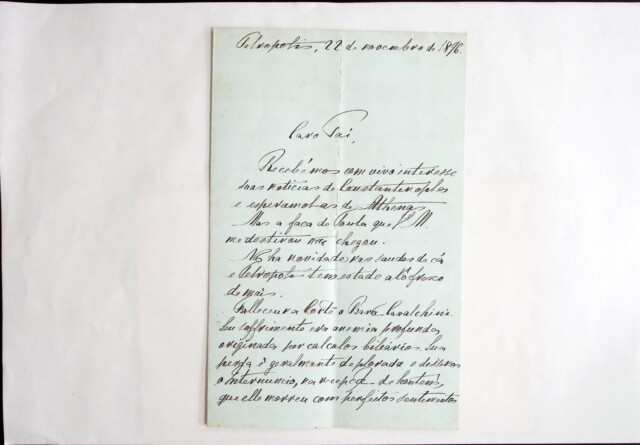 Petropolis, 22 de novembro de 1876.
Caro Pai,
Recebémos com vivo interesse
suas noticias de Constantinopla
e esperamol-as de Athenas
Mas a faca de Paula que S. M.
me destinou não chegou.
Não ha novidade nas saudes de cá
e Petropolis tem estado até fresco
de mais.
Falleceu na Côrte o Barão Cavalchini
Seu soffrimento era anemia profunda,
originada por calculos biliários. Sua
perda é geralmente deplorada e disse-nos
o internuncio, na recepção de hontem,
que elle morreu com perfeitos sentimentos